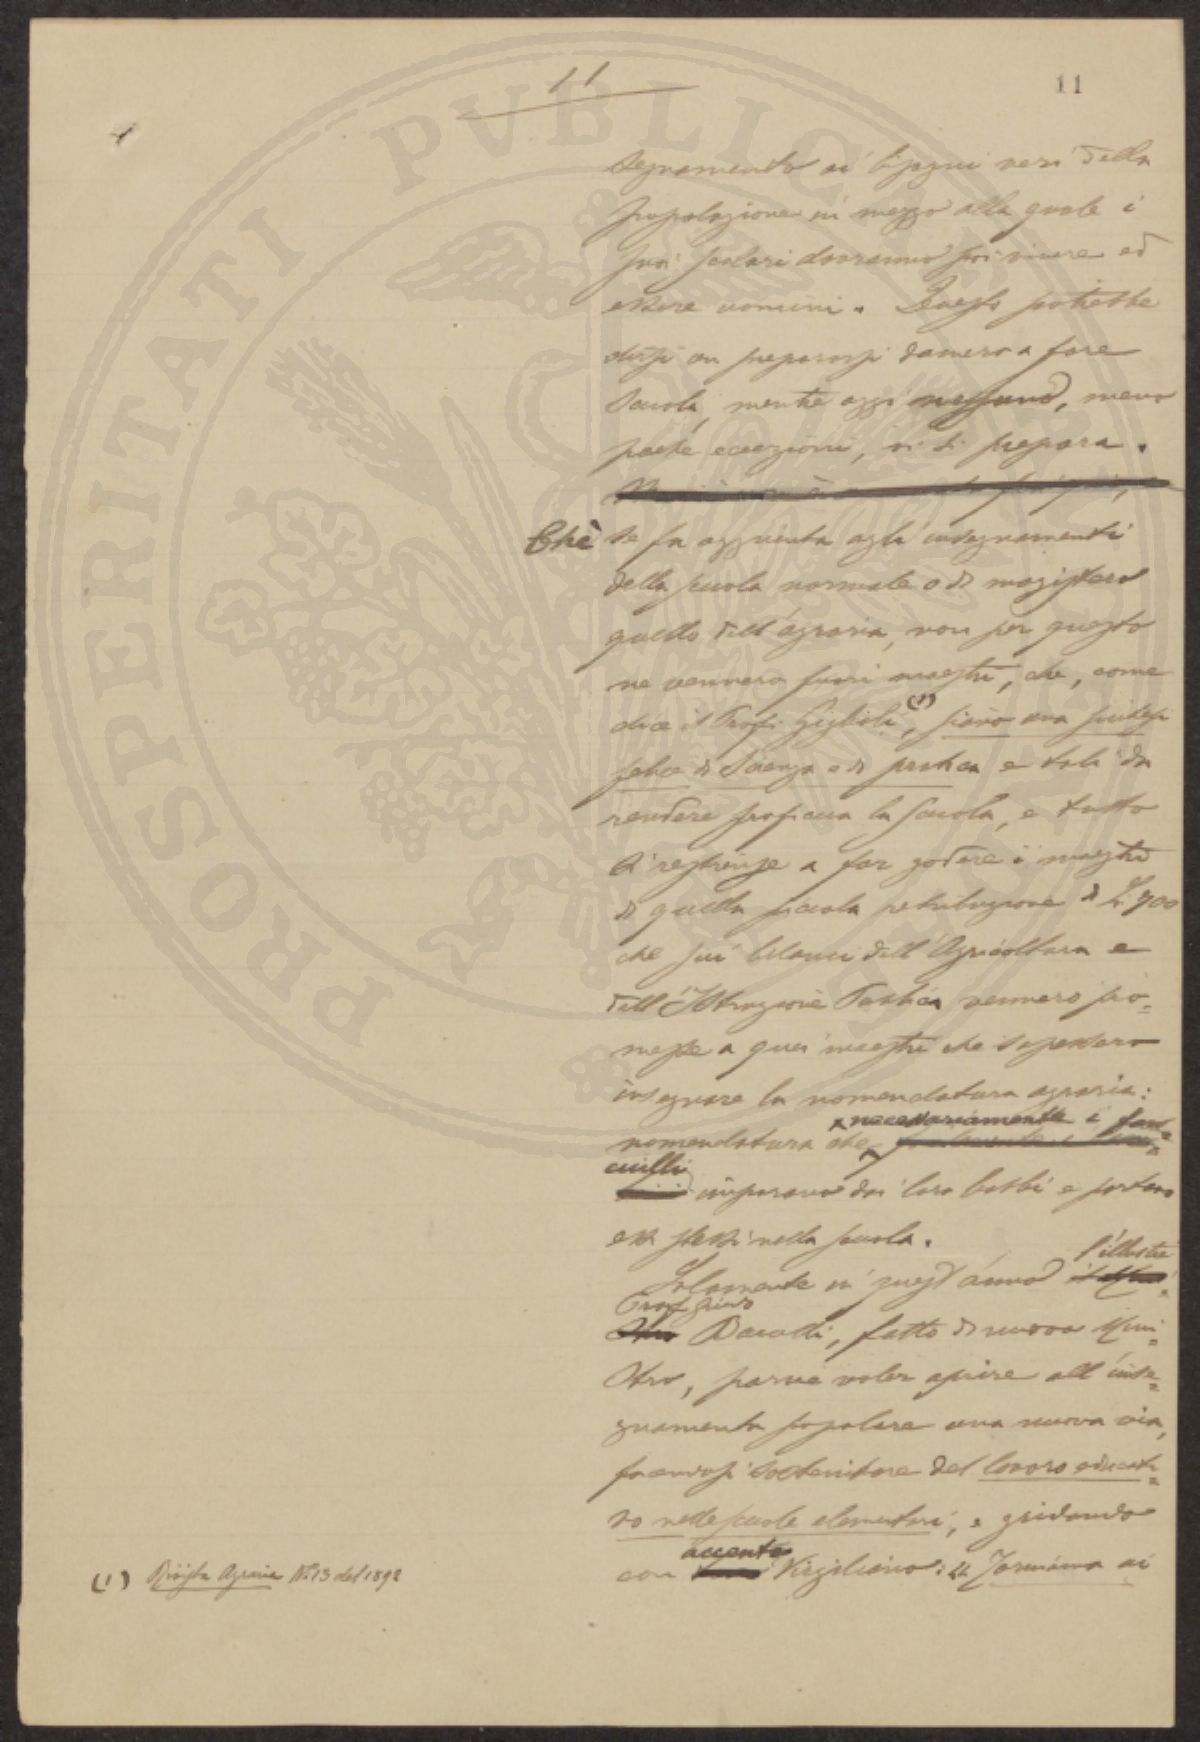 11
11
segnamento ai bisogni veri della
popolazione in mezzo alla quale i
suoi scolari dovranno poi vivere ed
essere uomini. Questo potrebbe
dirsi un prepararsi davvero a fare
scuola, mentre oggi nessuno, meno
poche eccezioni, vi si prepara.
Chè se fu aggiunta agli insegnamenti
della scuola normale o di magistero
quello dell'agraria, non per questo
ne vennero fuori maestri, che, come
dice il Prof. Giglioli (1), siano una sintesi
felice di scienza e di pratica e tali da
rendere proficua la scuola, e tutto
si restringe a far godere i maestri
di quella piccola retribuzione di L. 700
che sui bilanci dell'Agricoltura e
dell'Istruzione Pubblica vennero pro-
messe a quei maestri che sapessero
insegnare la nomenclatura agraria:
nomenclatura che necessariamente i fan-
ciulli imparano dai loro babbi e portano
essi stessi nella scuola.
Solamente in quest'anno l'illustre
Prof. Guido Baccelli, fatto di nuovo Mini-
stro, parve voler aprire all'inse-
gnamento popolare una nuova via,
facendosi sostenitore del lavoro educati-
vo nelle scuole elementari, e gridando
con accento Virgiliano: "Torniamo ai
(1) Rivista Agraria N.° 13 del 1892
PROSPERITATI PVBLICAE